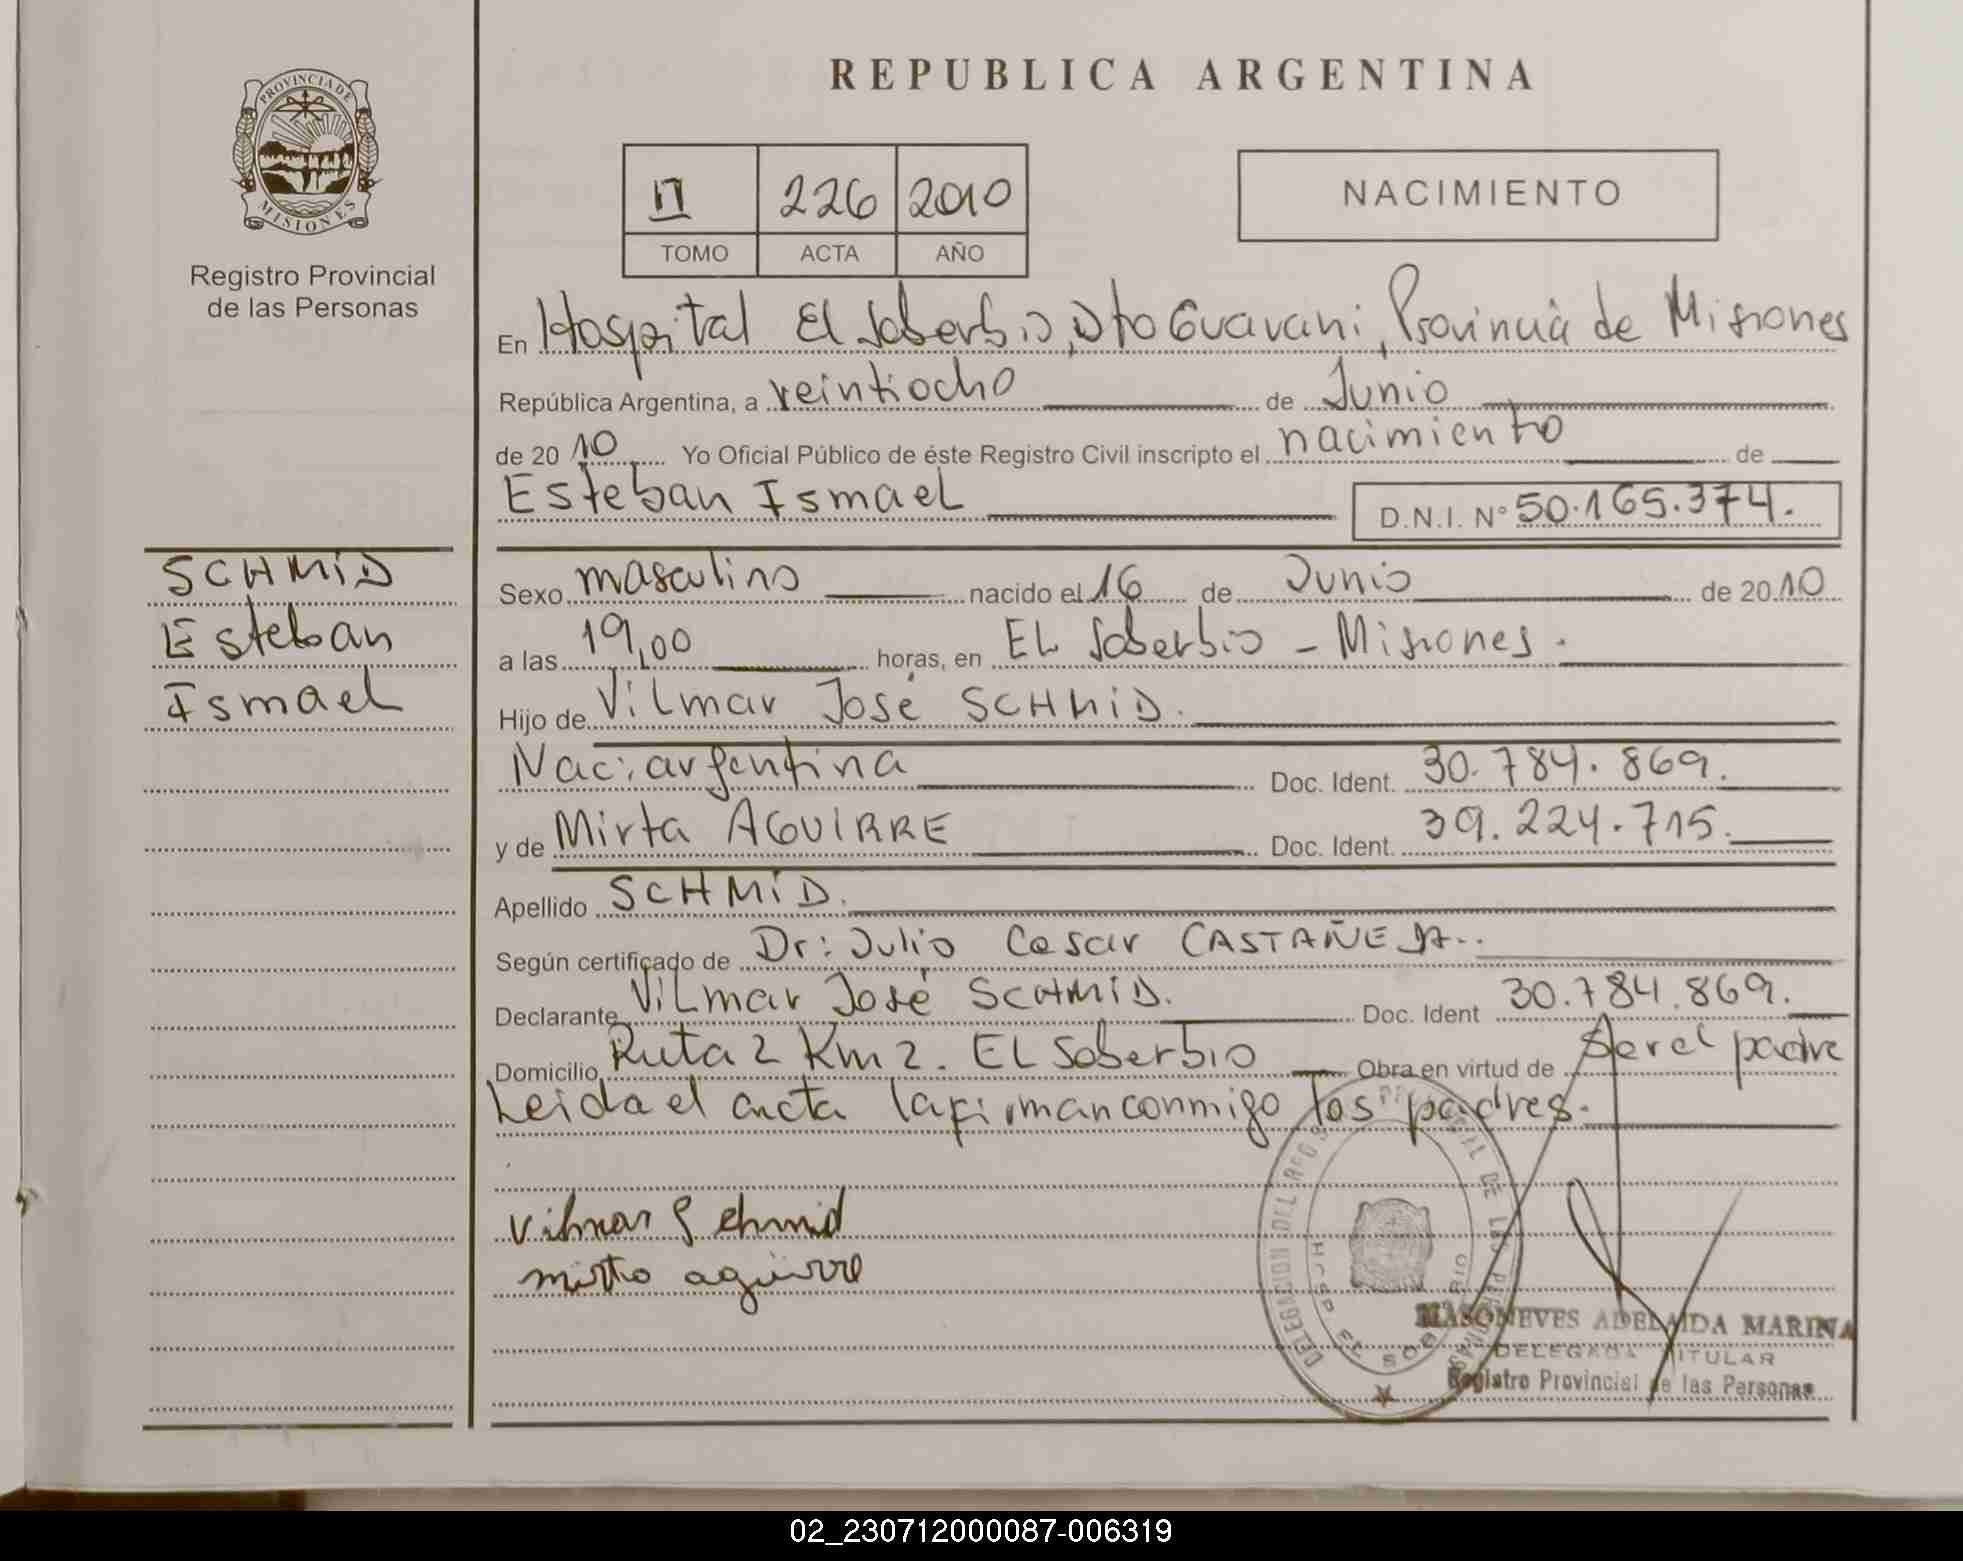 PROVINCIA DE
MISIONES
Registro Provincial
de las Personas
SCHMiD
Esteban
Ismael
REPUBLICA ARGENTINA
II 226 2010
TOMO ACTA AÑO
NACIMIENTO
En Hospital El Soberbio, Dto Guarani, Provincia de Misiones
República Argentina, a veintiocho de Junio
de 2010 Yo Oficial Público de éste Registro Civil inscripto el nacimiento de
Esteban Ismael D.N.I. N° 50.165.374.
Sexo masculino nacido el 16 de Junio de 2010
a las 19,00 horas, en EL Soberbio - Misiones.
Hijo de Vilmar José SCHMiD.
Nac: argentina Doc. Ident. 30.784.869.
y de Mirta AGUIRRE Doc. Ident. 39.224.715.
Apellido SCHMiD.
Según certificado de Dr: Julio Cesar CASTAÑEDA..
Declarante Vilmar José SCHMiD. Doc. Ident 30.784.869.
Domicilio Ruta 2 Km 2. EL Soberbio Obra en virtud de Ser el padre
Leida el acta la firman conmigo los padres.
Vilmar Schmid
mirta aguirre
DELEGACION DEL REG PROVINCIAL DE LAS PERSONAS
HOSP EL SOBERBIO
MASONEVES ADELAIDA MARINA
DELEGADA TITULAR
Registro Provincial de las Personas
02_230712000087-006319